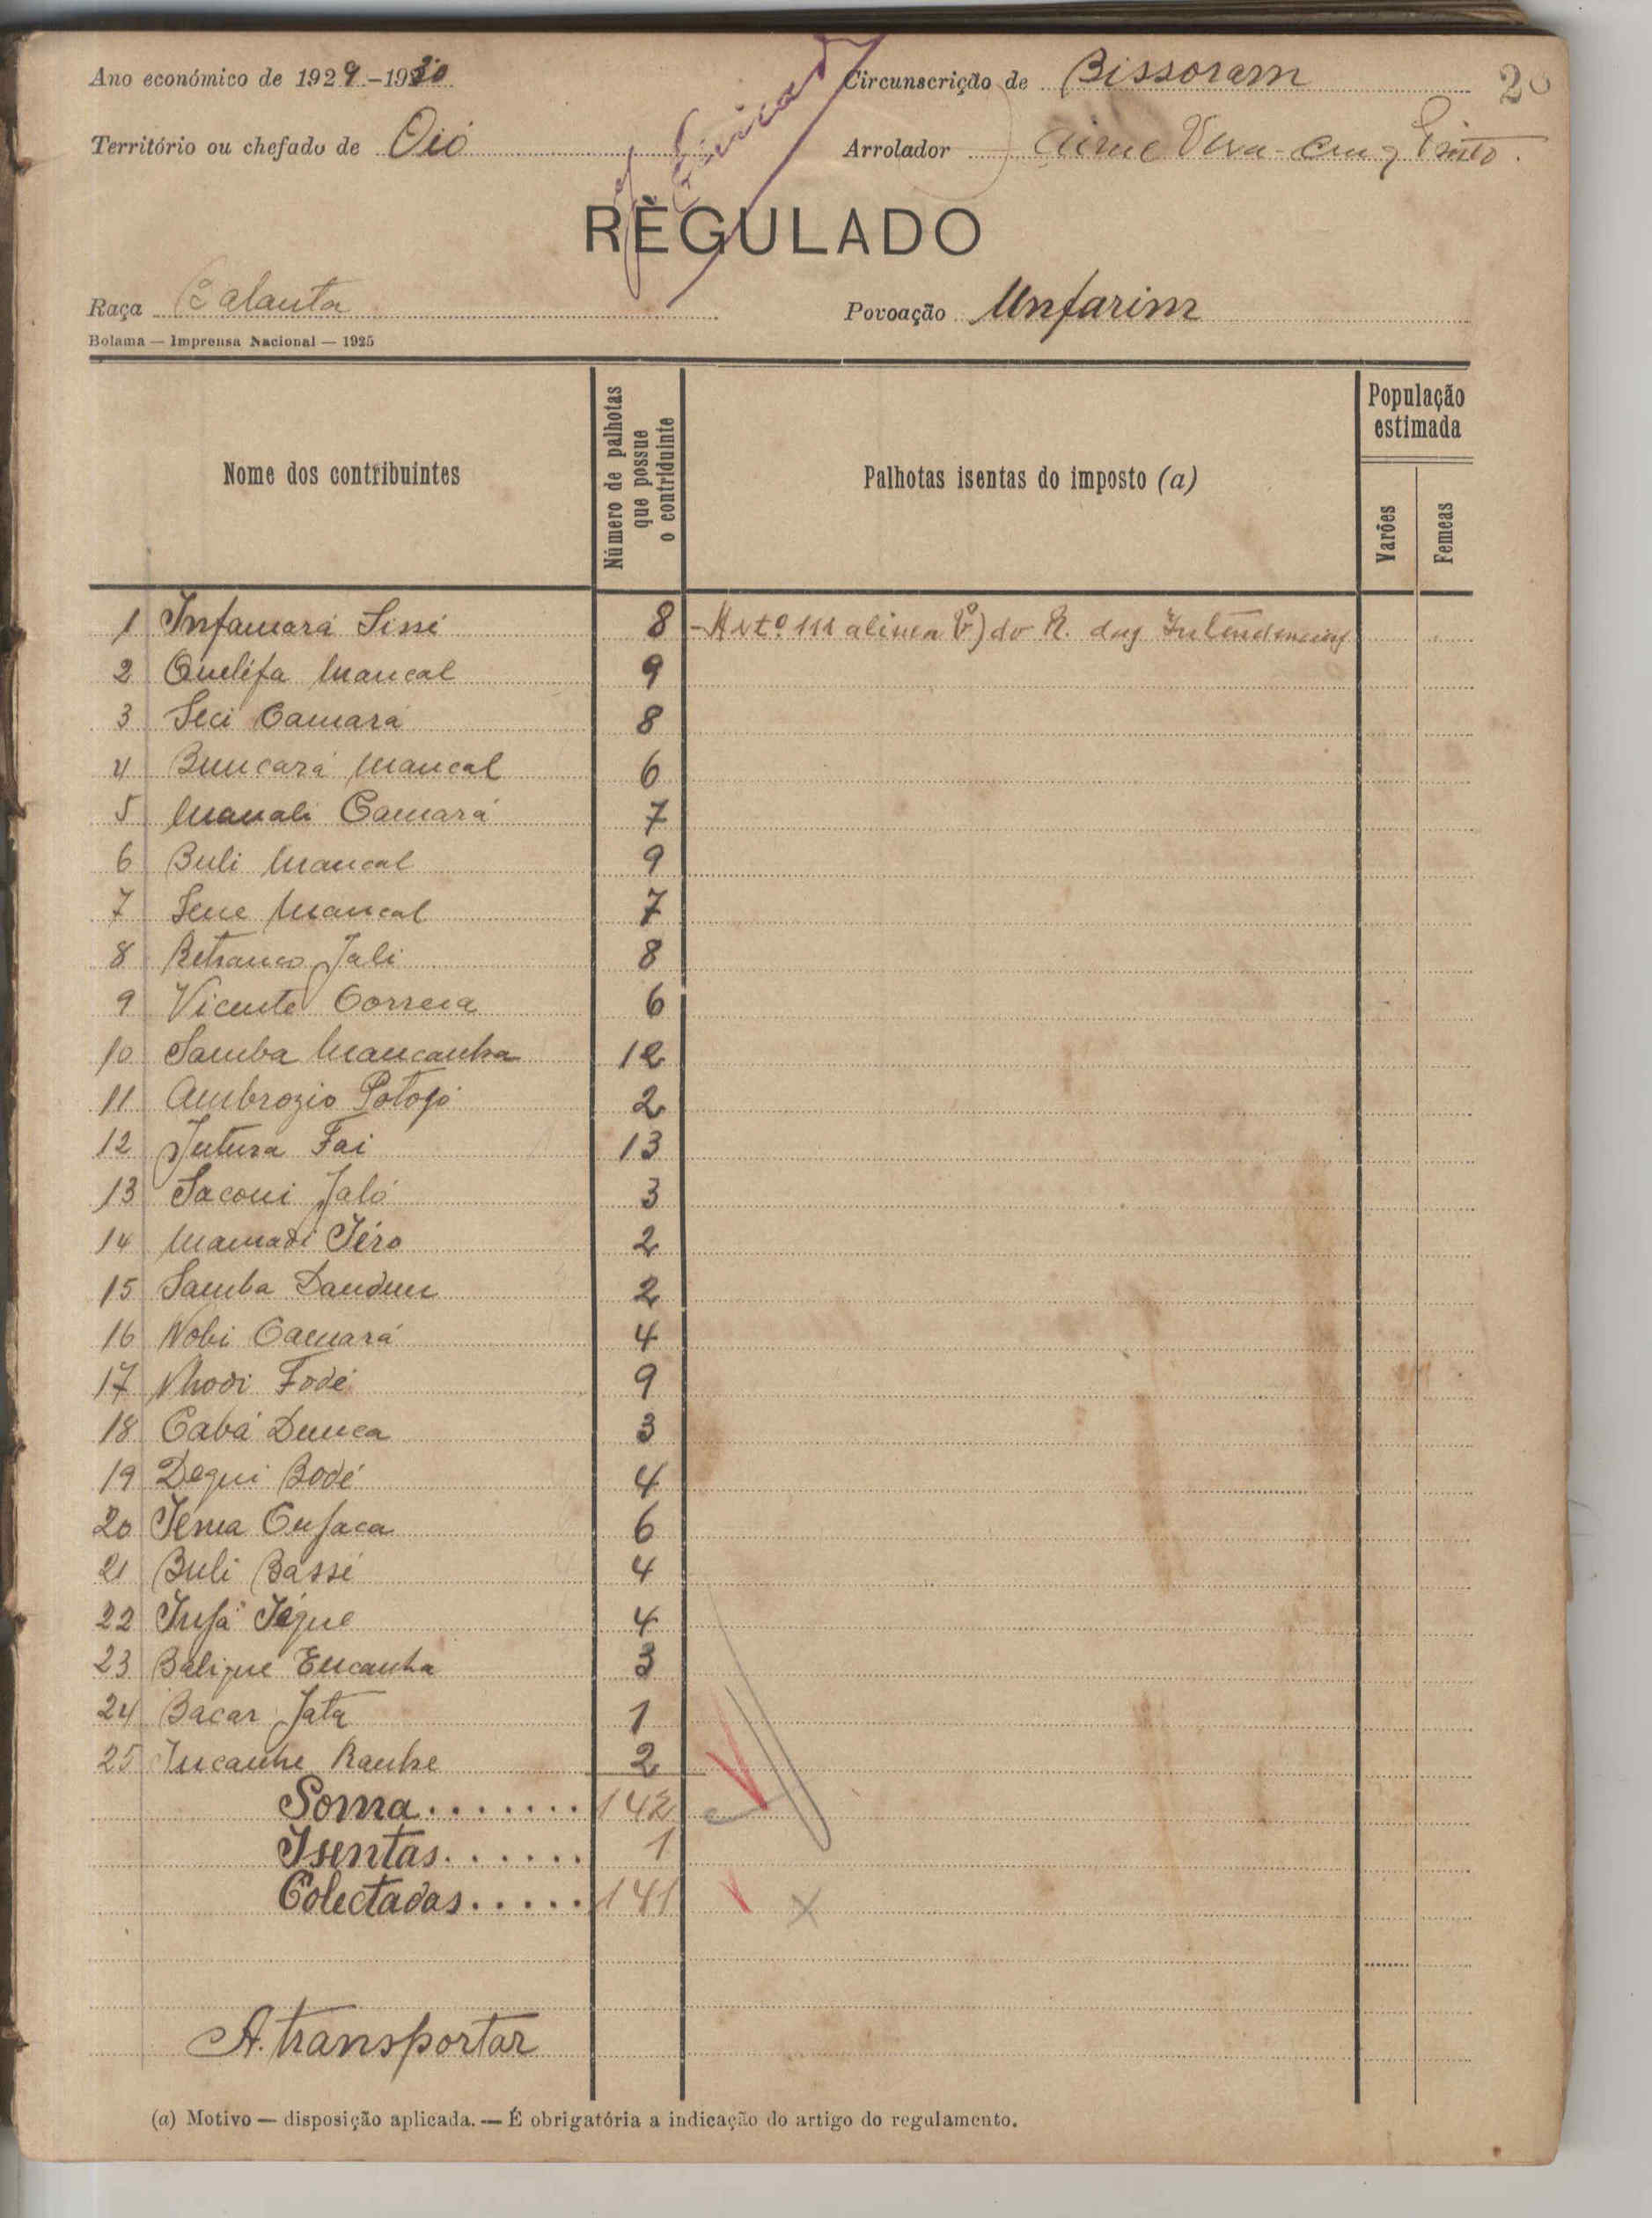 Ano económico de 1929-1930
Circunscrição de Bissoram
20
Território ou chefado de Oio
Arrolador Vera-Cruz Pinto.
RÈGULADO
Raça Balanta
Povoação Unfarim
Bolama — Imprensa Nacional — 1925
Nome dos contribuintes
Número de palhotas que possue o contriduinte
Palhotas isentas do imposto (a)
População estimada
Varões
Femeas
1 Infamará Sissé 8 - Artº 111 alinea do R. das Intendencias
2 Quelifa Mancal 9
3 Seci Camará 8
4 Buncará Mancal 6
5 Manali Camará 7
6 Buli Mancal 9
7 Sene Mancal 7
8 Jali 8
9 Vicente Correia 6
10 Samba Mancanha 12
11 Ambrozio 2
12 Jutura Fai 13
13 Saconi Jaló 3
14 Mamadi Téro 2
15 Samba Dandum 2
16 Nobi Camará 4
17 Nhodi Fodé 9
18 Cabá Dunca 3
19 Dequi Bodé 4
20 6
21 Buli Bassé 4
22 4
23 Encanha 3
24 Bacar Jata 1
25 2
Soma....... 142
Isentas...... 1
Colectadas..... 141
A transportar
(a) Motivo — disposição aplicada. — É obrigatória a indicação do artigo do regulamento.